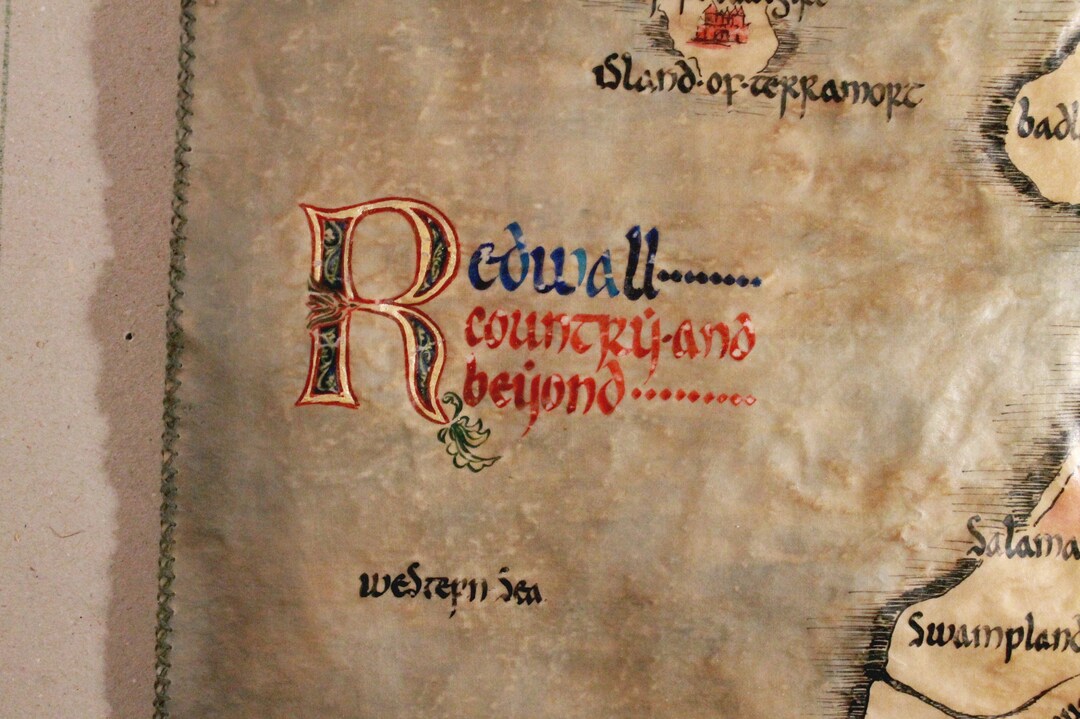 island·of·terramort
badl
Redwall········
country·and
beyond·········
Salama
western Sea
Swampland